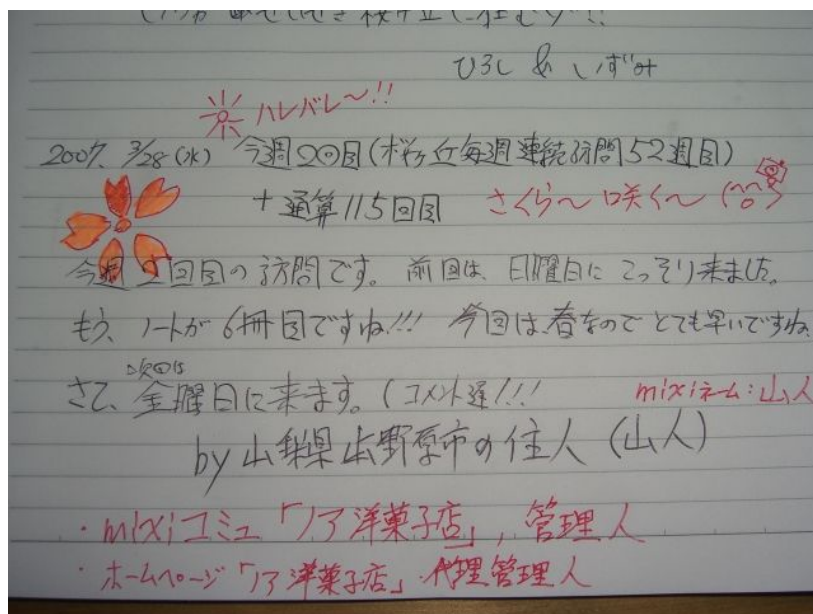 ひろし & いずみ
ハレバレ〜!!
2007. 3/28(水) 今週2回目(桜ヶ丘毎週連続訪問52週目)
+通算115回目 さくら〜咲く〜(^o^)
今週2回目の訪問です。前回は、日曜日にこっそり来ました。
もう、ノートが6冊目ですね!!! 今回は、春なのでとても早いですね
次回は
さて、金曜日に来ます。(コメント遅!!! mixiネーム:山人
by 山梨県上野原市の住人(山人)
・mixiコミュ「ノア洋菓子店」,管理人
・ホームページ「ノア洋菓子店」・代理管理人